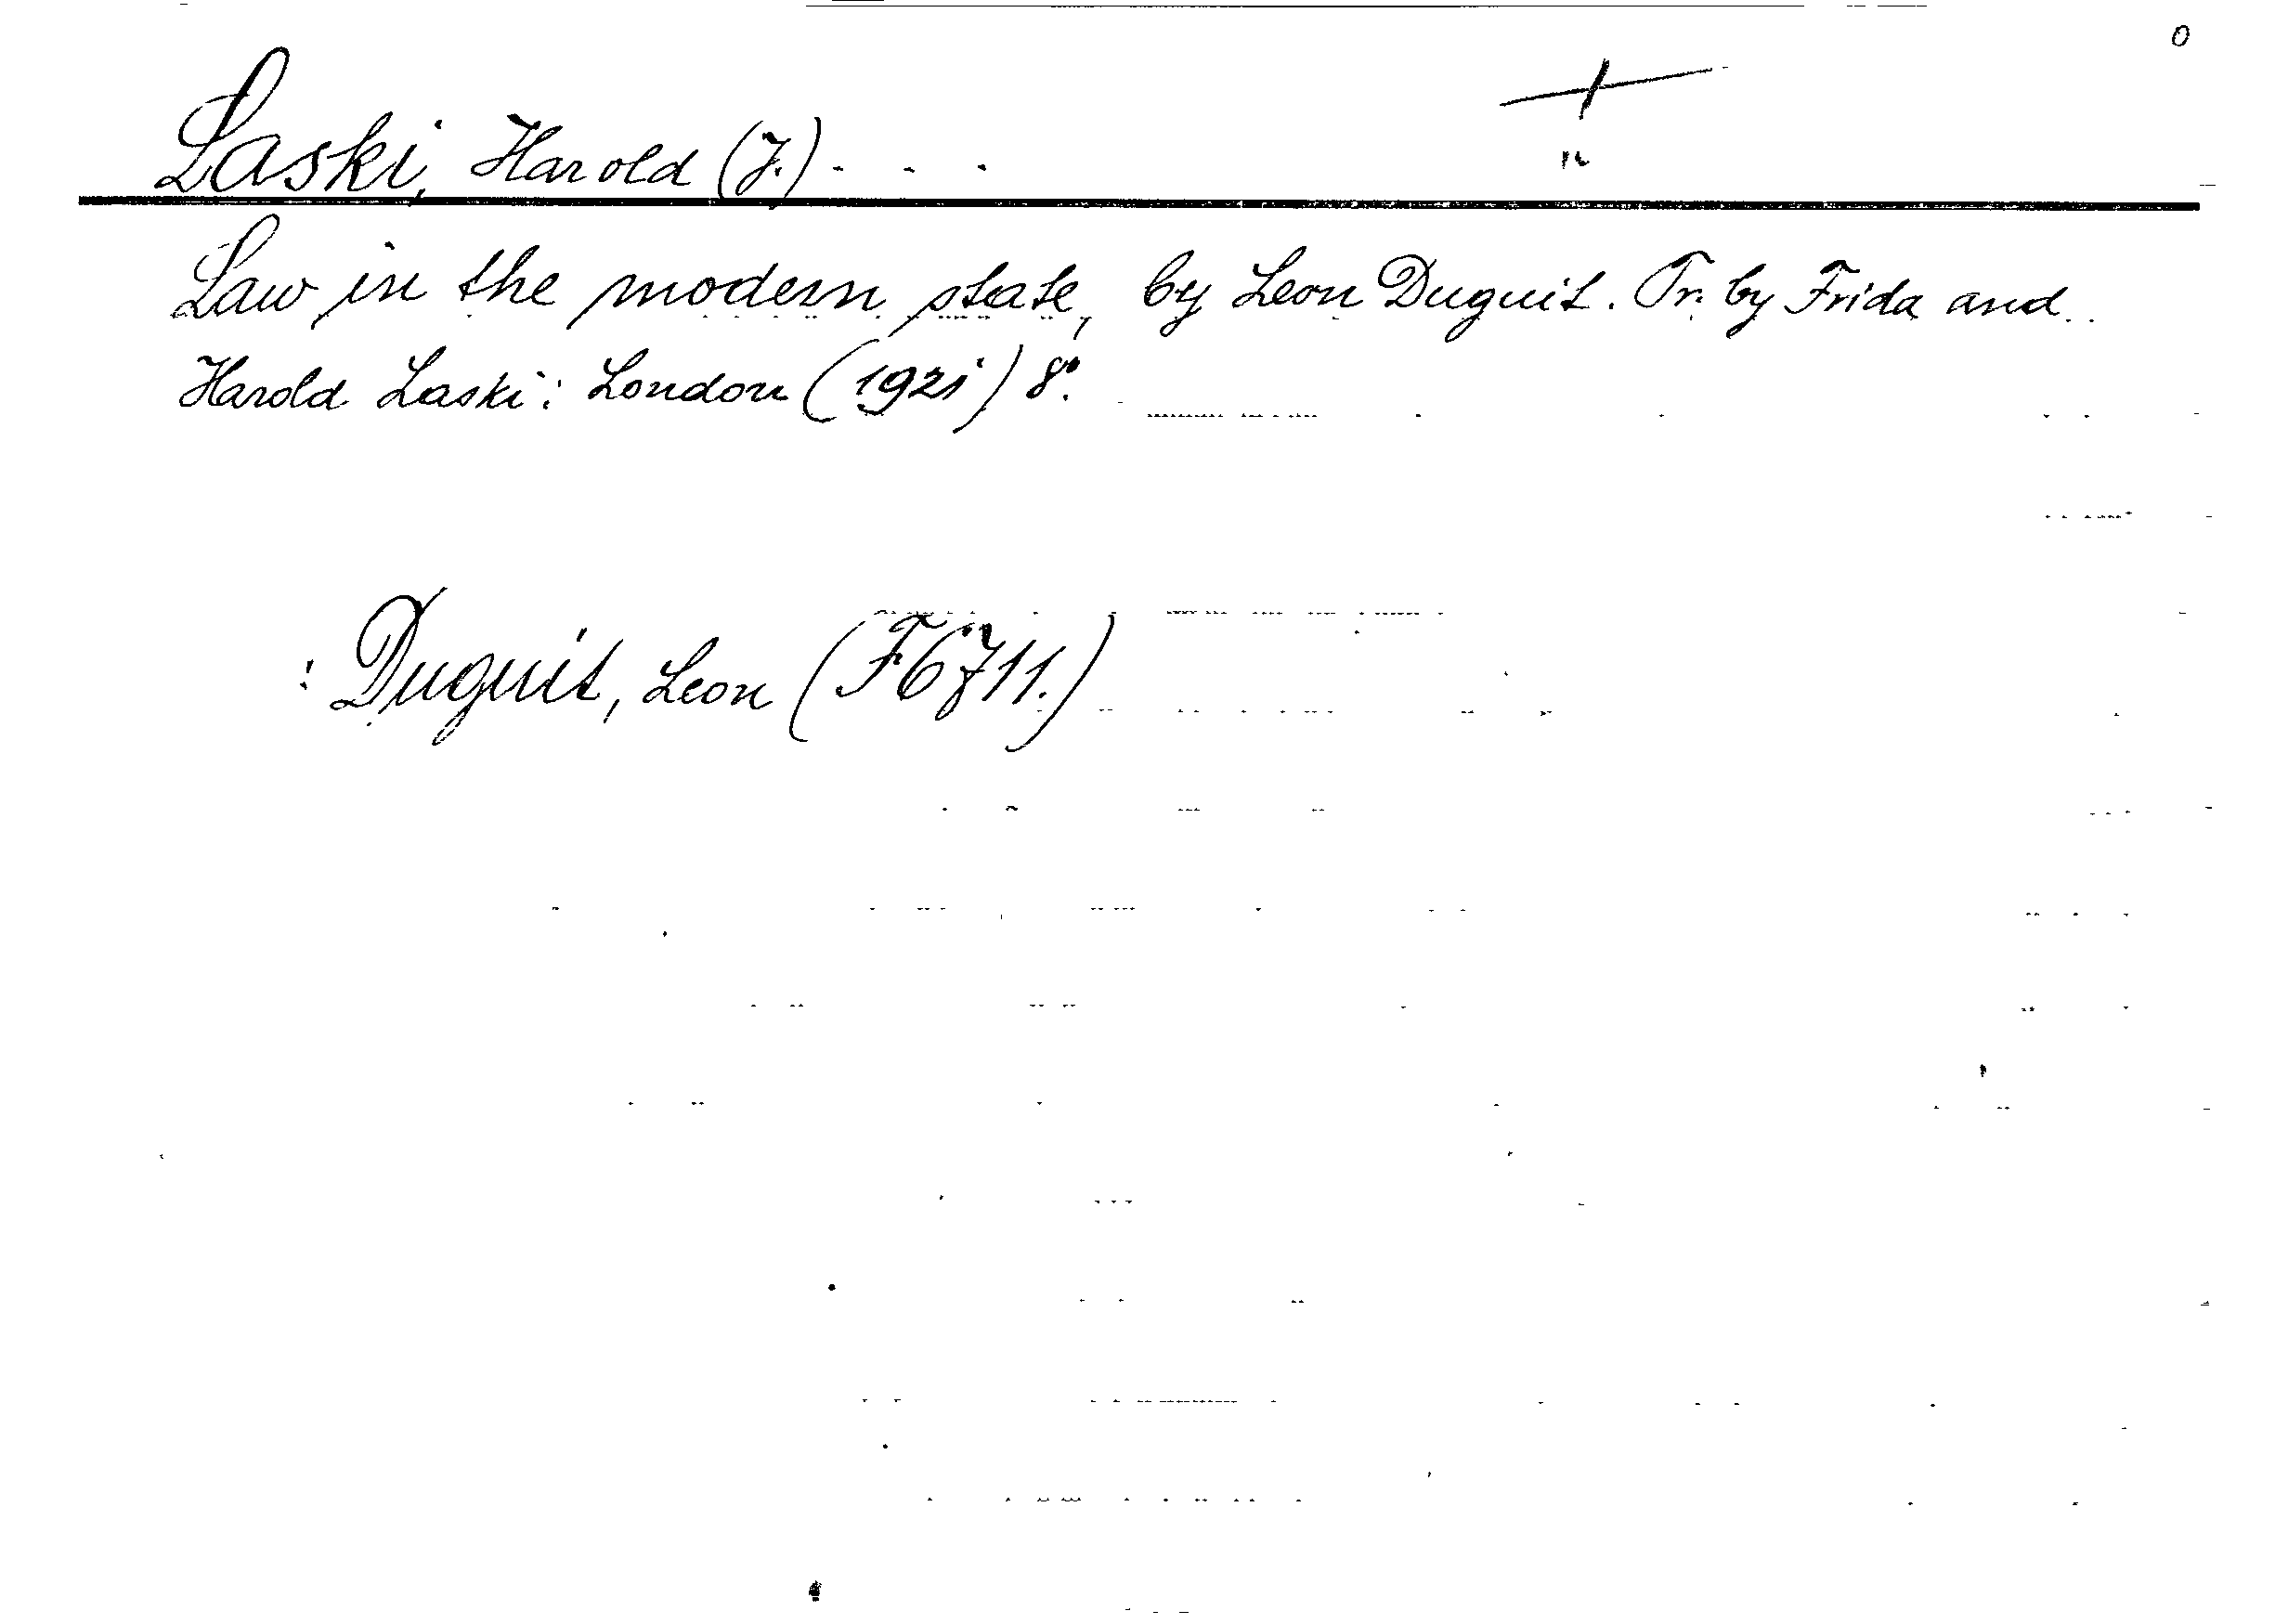 Laski, Harold (J.) - - -
Law in the modern state, by Leon Duguit. Tr. by Frida and
Harold Laski: London (1921) 8°.
: Duguit, Leon (F6711.)